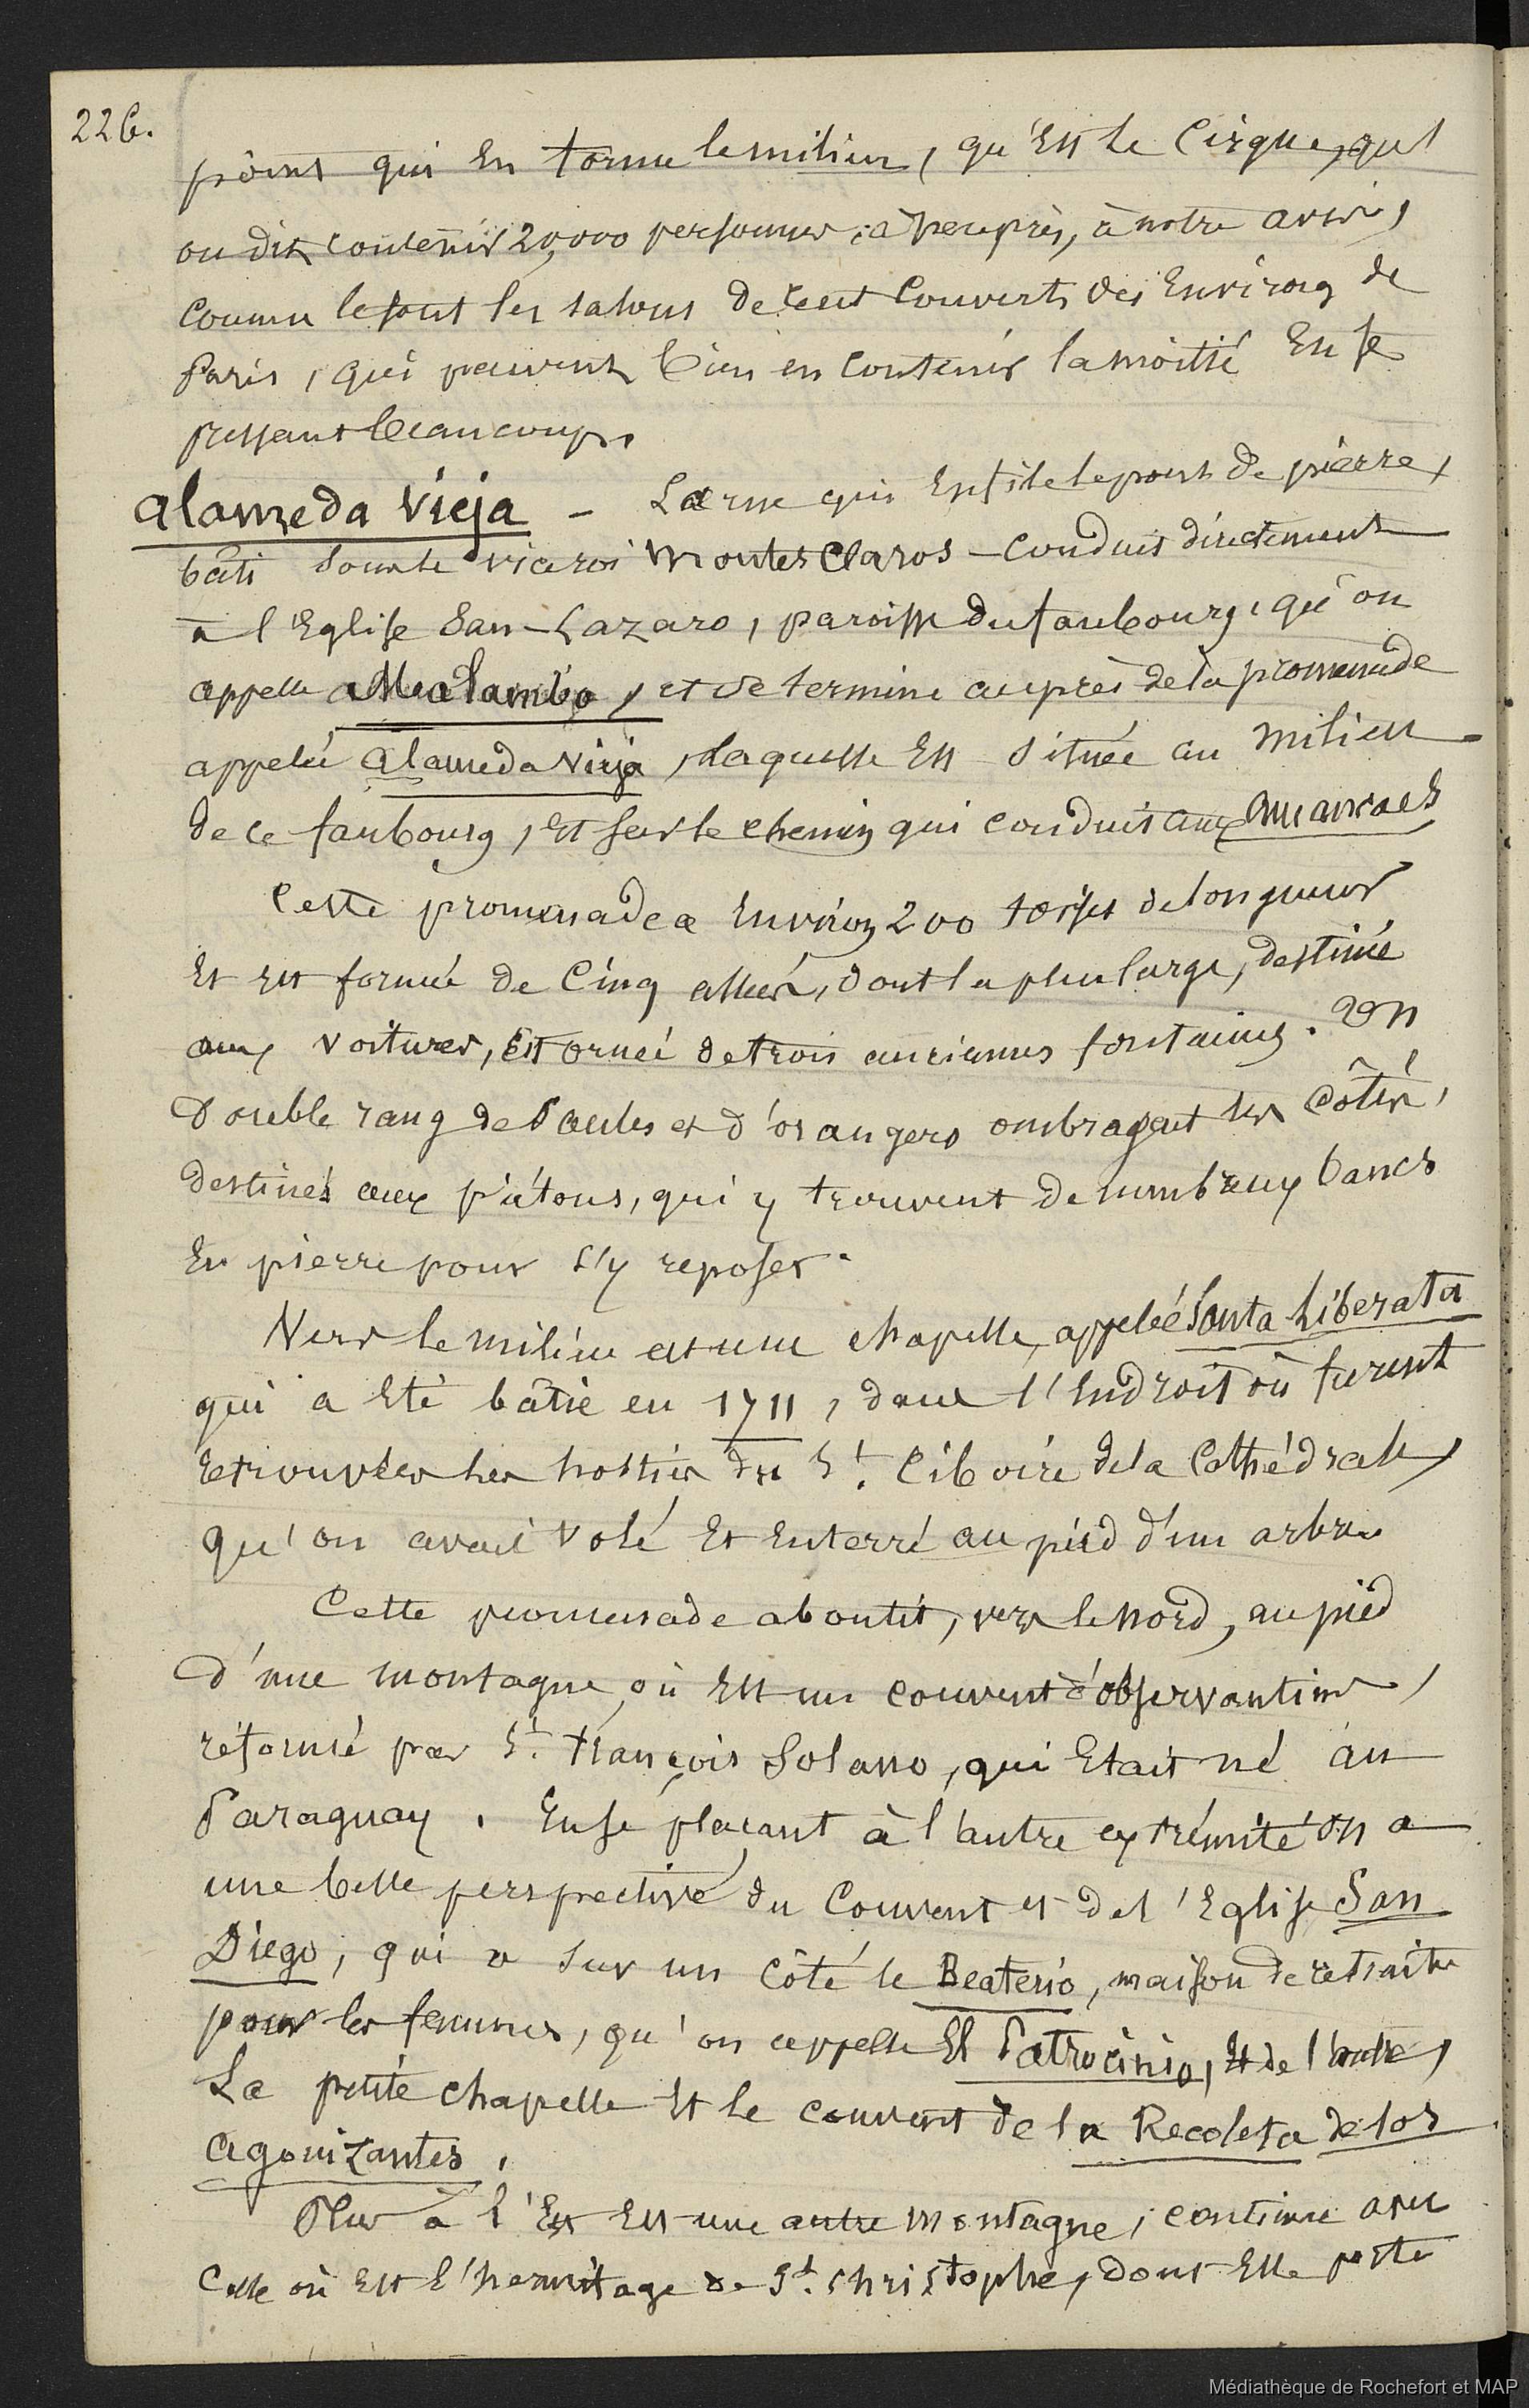 226.
point qui en forme le milieu, qu'est le Cirque, qu'
on dit contenir 20,000 personnes, à peu près, à notre avis,
comme le sont les salons de cent Couverts des Environs de
Paris, qui peuvent bien en contenir la moitié En se
pressant beaucoup.
Alameda Vieja - La rue qui Enfile le pont de pierre,
bâti sous le viceroi Montes Claros - Conduit directement
à l'Eglise San-Lazaro, paroisse du faubourg, qu'on
appelle Malambo, et se termine auprès de la promenade
appelée Alameda Vieja, laquelle Est située au milieu
de ce faubourg, Et sur le chemin qui conduit aux Amancaes
Cette promenade a Environ 200 toises de longueur
Et est formée de Cinq allées, dont la plus large, destinée
aux voitures, Est ornée de trois anciennes fontaines. Un
Double rang de Saules et d'orangers ombragent les côtés,
destinés aux piétons, qui y trouvent de nombreux bancs
En pierre pour s'y reposer.
Vers le milieu est une chapelle, appelée Santa Liberata
qui a Eté bâtie en 1711, dans l'Endroit où furent
retrouvées les hosties du St. Ciboire de la Cathédrale,
qu'on avait volé Et Enterré au pied d'un arbre
Cette promenade aboutit, vers le nord, au pied
d'une montagne, où Est un couvent d'observantins,
réformé par St. François Solano, qui Etait né au
Paraguay. En se plaçant à l'autre extrémité on a
une belle perspective du Couvent et de l'Eglise San
Diego, qui a sur un côté le Beaterio, maison de retraite
pour les femmes, qu'on appelle El Patrocinio, Et de l'autre,
La petite chapelle Et le couvent de la Recoleta de los
Agonizantes.
Plus à l'Est Est une autre montagne, continue avec
Celle où Est l'hermitage de St. Christophe, dont Elle porte
Médiathèque de Rochefort et MAP